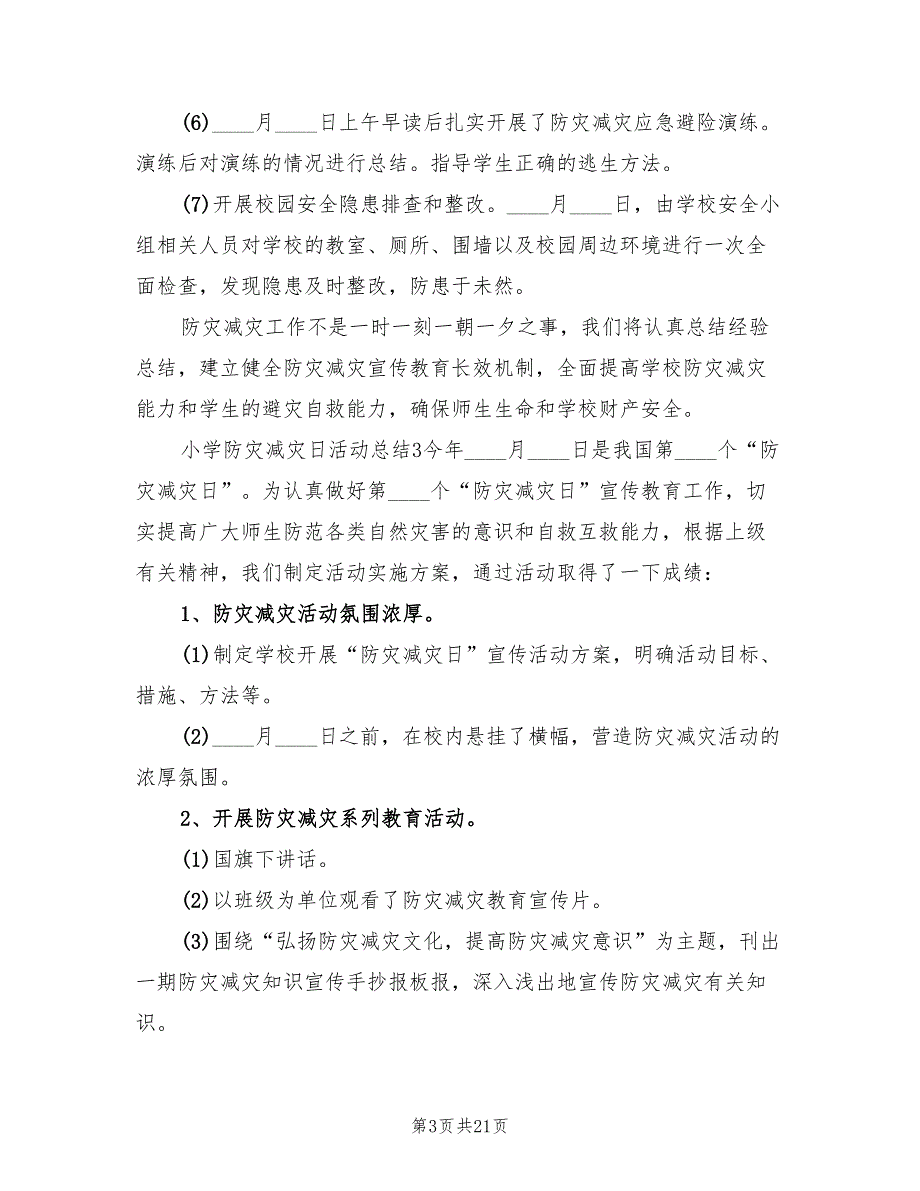 (6)____月____日上午早读后扎实开展了防灾减灾应急避险演练。
演练后对演练的情况进行总结。指导学生正确的逃生方法。
(7)开展校园安全隐患排查和整改。____月____日，由学校安全小
组相关人员对学校的教室、厕所、围墙以及校园周边环境进行一次全
面检查，发现隐患及时整改，防患于未然。
防灾减灾工作不是一时一刻一朝一夕之事，我们将认真总结经验
总结，建立健全防灾减灾宣传教育长效机制，全面提高学校防灾减灾
能力和学生的避灾自救能力，确保师生生命和学校财产安全。
小学防灾减灾日活动总结3今年____月____日是我国第____个“防
灾减灾日”。为认真做好第____个“防灾减灾日”宣传教育工作，切
实提高广大师生防范各类自然灾害的意识和自救互救能力，根据上级
有关精神，我们制定活动实施方案，通过活动取得了一下成绩：
1、防灾减灾活动氛围浓厚。
(1)制定学校开展“防灾减灾日”宣传活动方案，明确活动目标、
措施、方法等。
(2)____月____日之前，在校内悬挂了横幅，营造防灾减灾活动的
浓厚氛围。
2、开展防灾减灾系列教育活动。
(1)国旗下讲话。
(2)以班级为单位观看了防灾减灾教育宣传片。
(3)围绕“弘扬防灾减灾文化，提高防灾减灾意识”为主题，刊出
一期防灾减灾知识宣传手抄报板报，深入浅出地宣传防灾减灾有关知
识。
第3页共21页